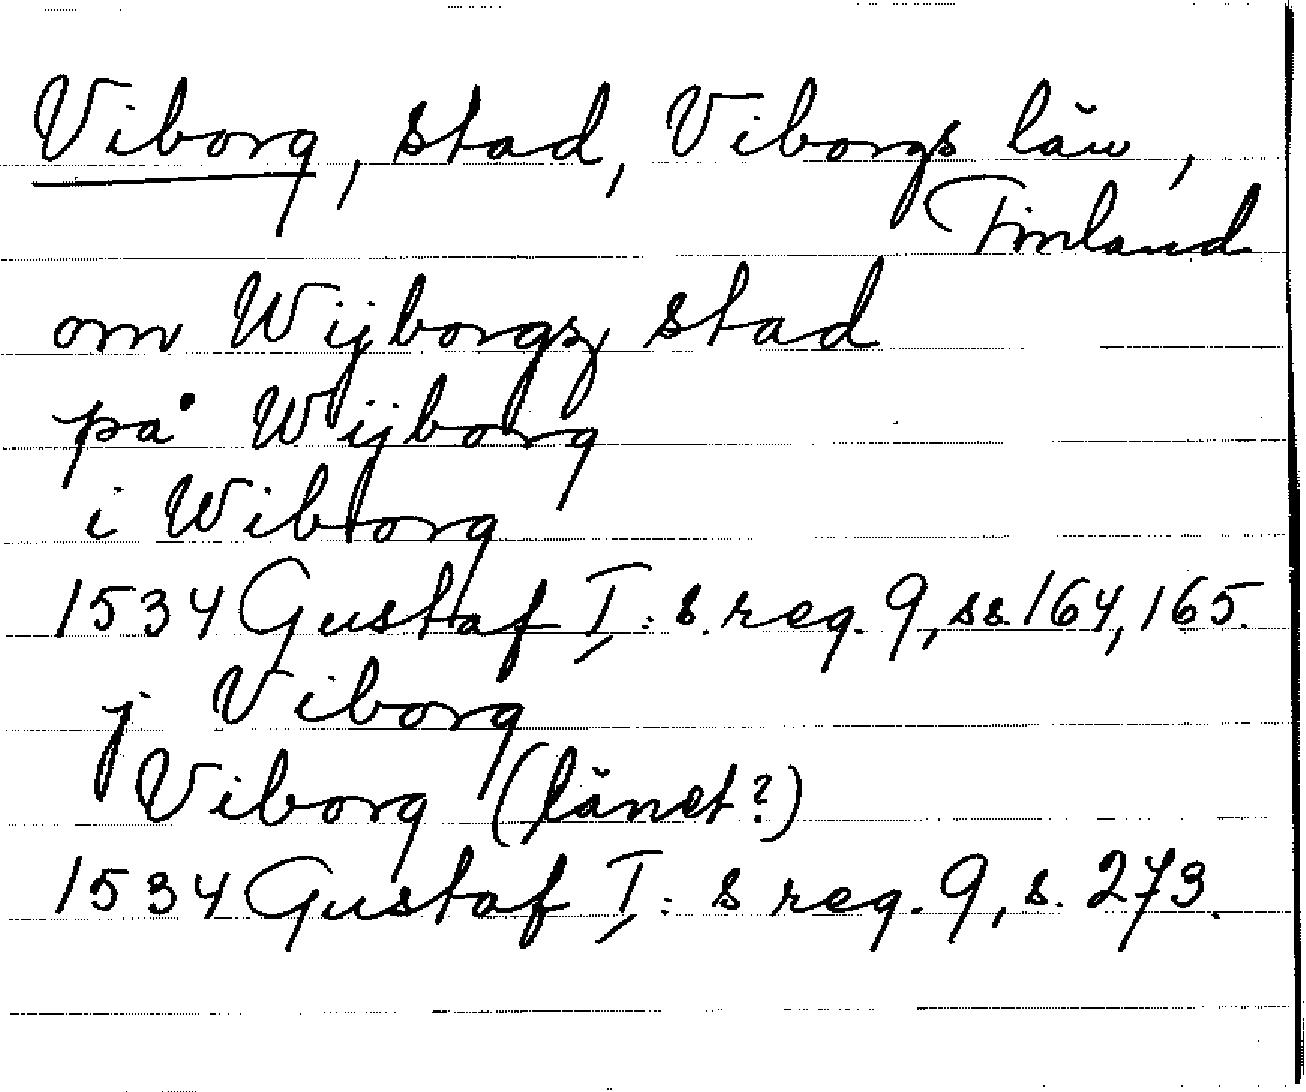 Viborg, stad, Viborgs län,
Finland
om Wijborgz stad
på Wijborg
i Wiborg
1534 Gustaf I: s. reg. 9, ss. 164, 165.
j Viborg
Viborg (länet?)
1534 Gustaf I: s reg. 9, s. 273.